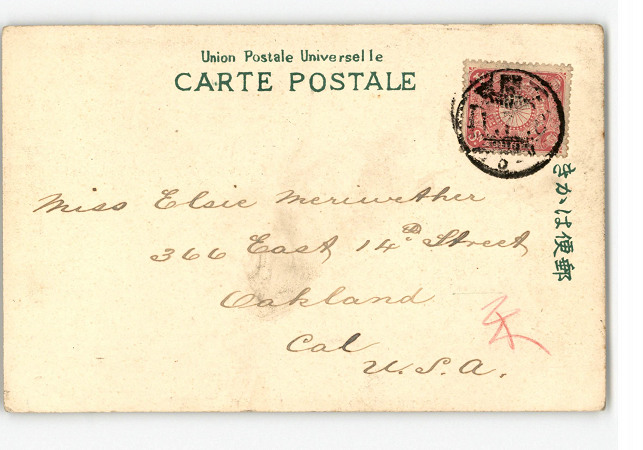 Union Postale Universelle
CARTE POSTALE
きかは便郵
Miss Elsie Meriwether
366 East 14th Street
Oakland
Cal
U.S.A.